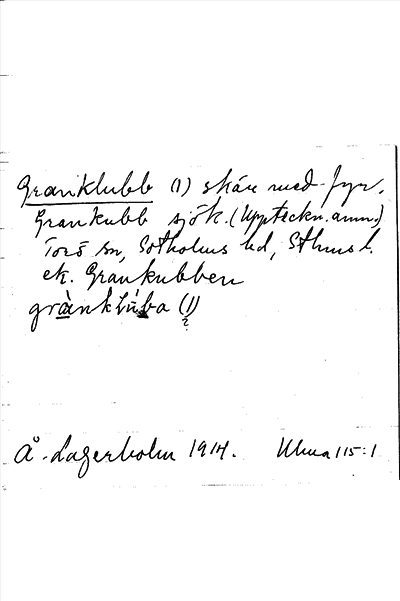 Granklubb (1) skär med fyr.
Grankubb sjök. (Uppteckn. anm.)
Torö sn, Sotholms hd, Sthms l.
ek. Grankubben
grànk ba (1)
?
Å. Lagerholm 1914. Ulma 115:1